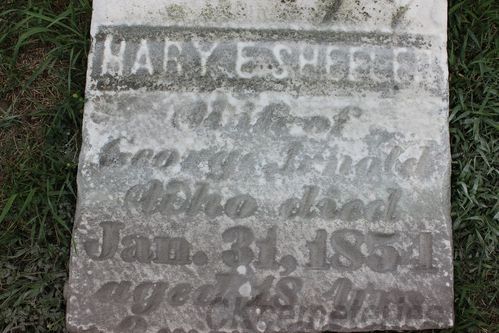 MARY E. SHEELER
Wife of
George Arnold
Who died
Jan. 31, 1851
aged 18 Yrs